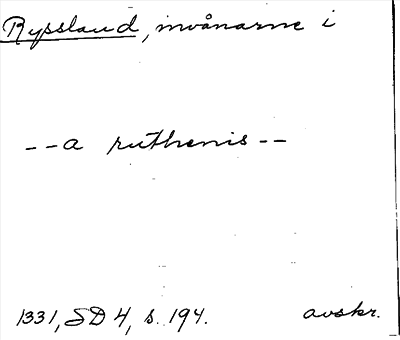 Ryssland, invånarne i
--a ruthenis--
1331, SD 4, s. 194. avskr.